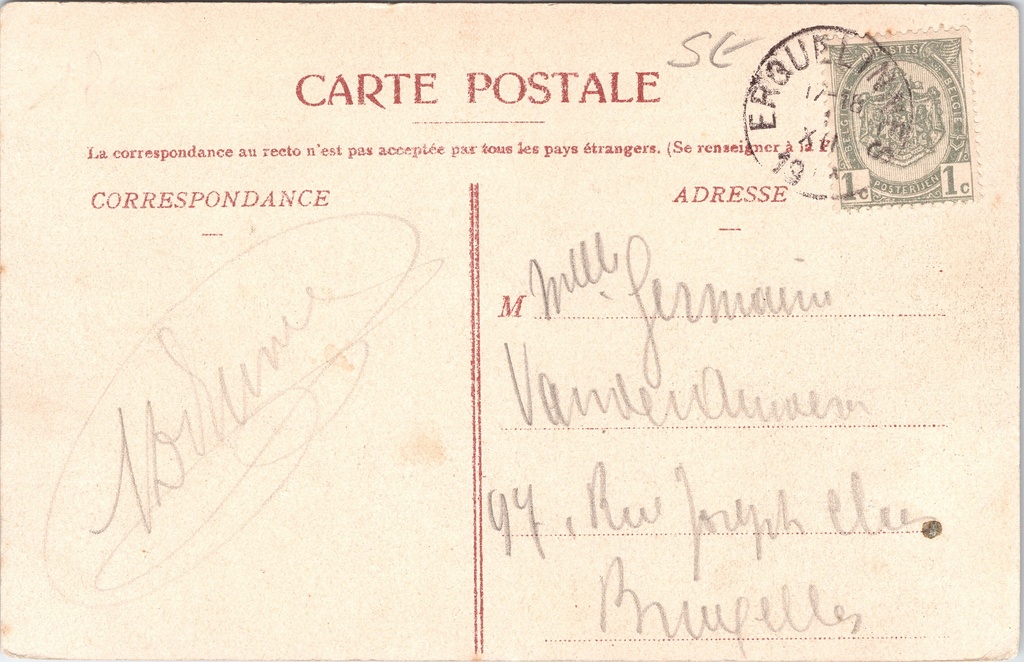 SE
CARTE POSTALE
La correspondance au recto n'est pas acceptée par tous les pays étrangers. (Se renseigner à la
CORRESPONDANCE
ADRESSE
ERQUELINNES
POSTES
BELGIQUE
BELGIE
POSTERIJEN
1c 1c
M Mlle Germaine
97, Rue Joseph Claes
Bruxelles